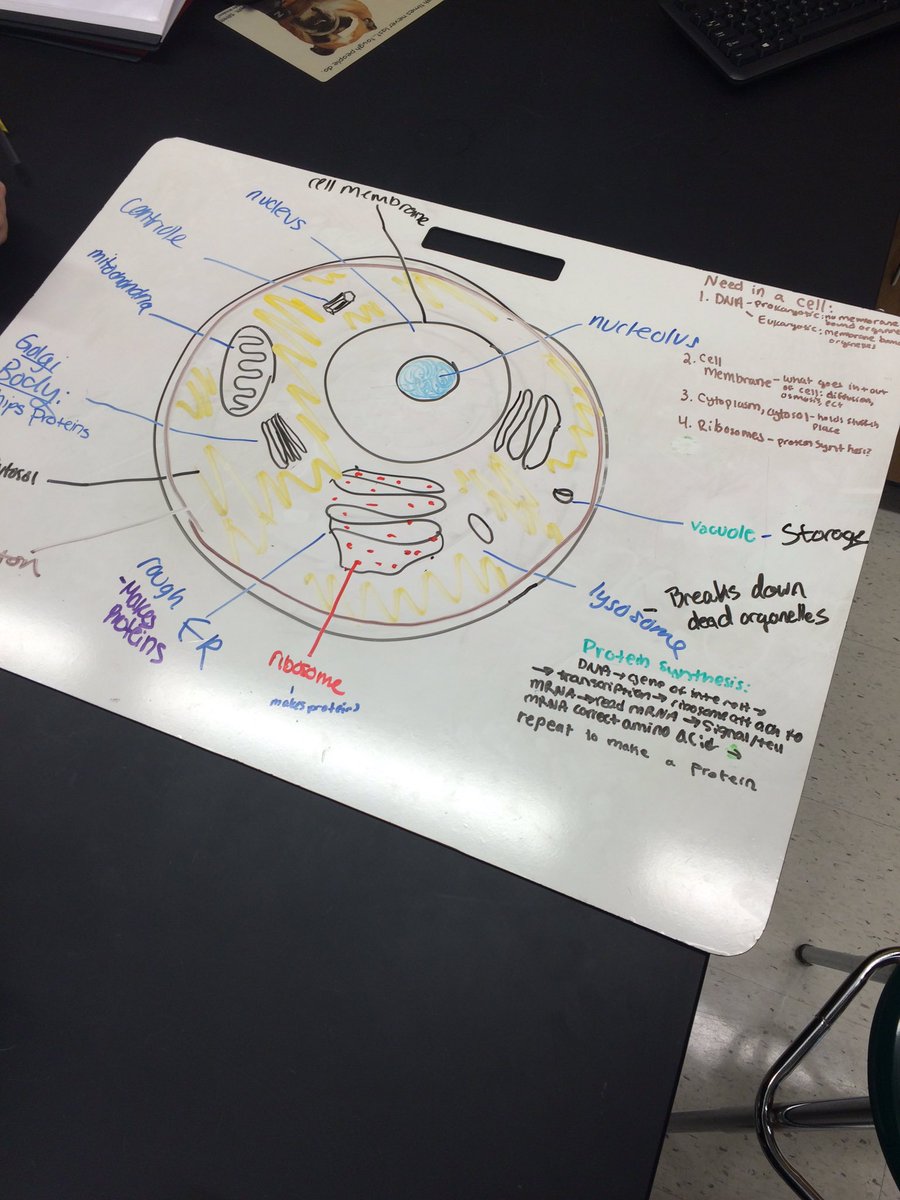 tough times never last, tough people do.
cell membrane
nucleus
Centriole
mitochondria
Golgi
Body:
ships proteins
nucleolus
Need in a cell:
1. DNA - Prokaryotic: no membrane
bound organelles
Eukaryotic: membrane bound
organelles
2. Cell
membrane - what goes in + out
of cell: diffusion,
osmosis, ect
3. Cytoplasm, cytosol - holds
place
4. Ribosomes - protein synthesis
vacuole - Storage
lysosome - Breaks down
dead organelles
rough ER
- Makes
proteins
ribosome
makes proteins
Protein synthesis:
DNA → gene of interest →
→ transcription → ribosome attach to
mRNA → read mRNA → signal/tell
mRNA correct amino acid →
repeat to make a protein